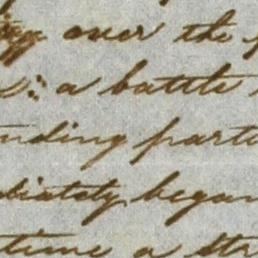 over the
: a battle
nding parti
diately began
time a str